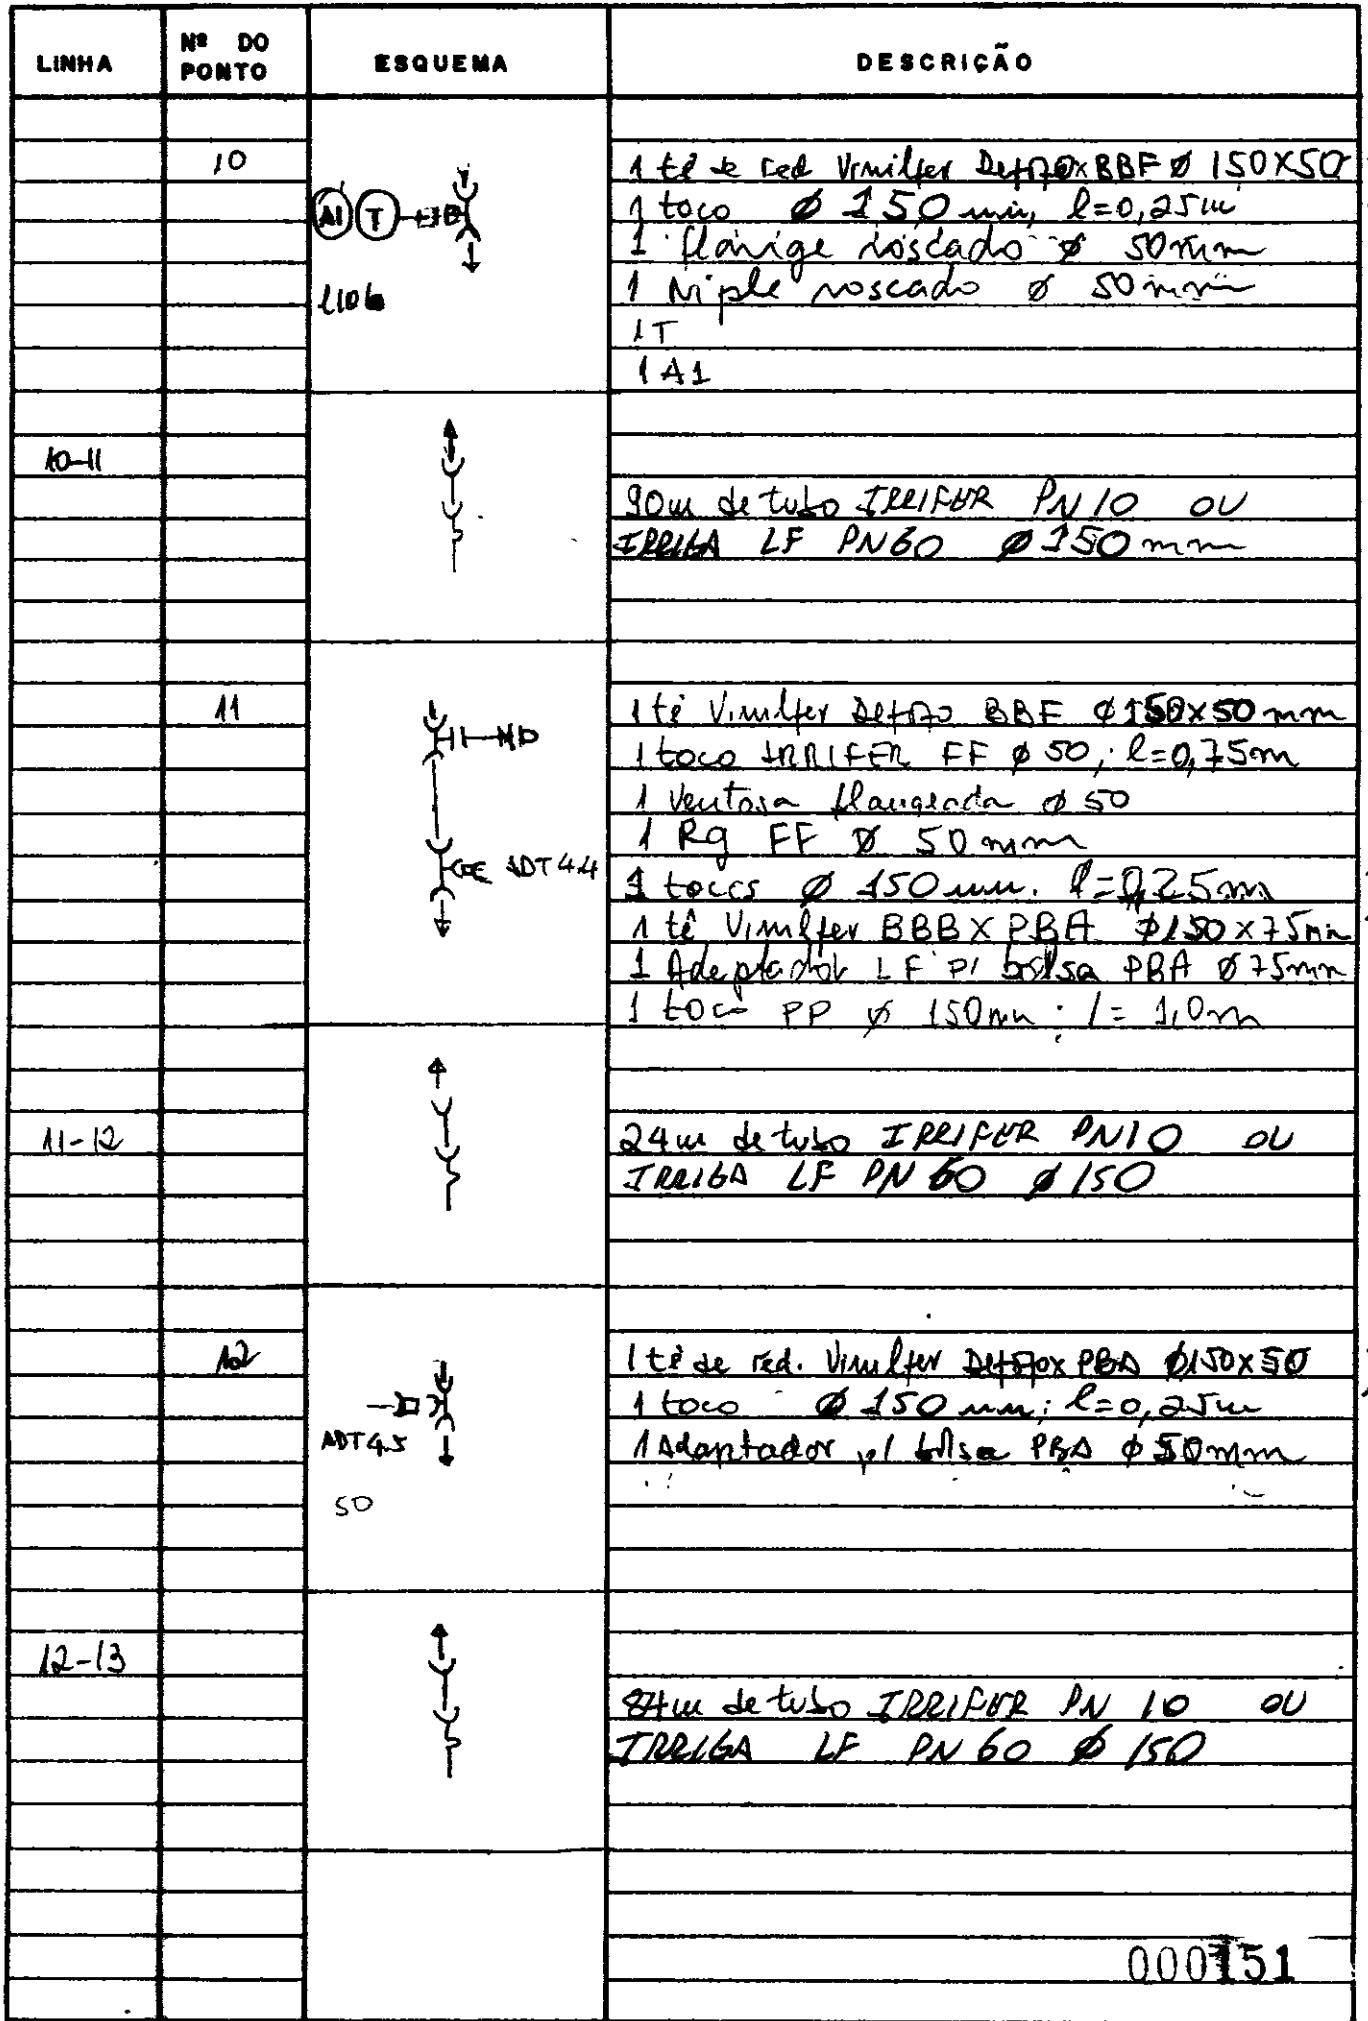 LINHA
Nº DO PONTO
ESQUEMA
DESCRIÇÃO
10
A1 T
L10b
1 tê de red Vinilfer Defofo x BBF Ø 150X50
1 toco Ø 150 mm, l=0,25m
1 flange roscado Ø 50mm
1 Niple roscado Ø 50mm
1T
1 A1
10-11
90m de tubo IRRIFER PN10 OU
IRRIGA LF PN60 Ø 150mm
11
ADT 4.4
1 tê Vinilfer Defofo BBF Ø 150x50 mm
1 toco IRRIFER FF Ø 50; l=0,75m
1 Ventosa flangeada Ø 50
1 Rg FF Ø 50 mm
1 tocos Ø 150 mm. l=0,25m
1 tê Vinilfer BBB X PBA Ø150 x 75mm
1 Adaptador LF p/ bolsa PBA Ø 75mm
1 toco PP Ø 150mm; l= 1,0m
11-12
24m de tubo IRRIFER PN10 OU
IRRIGA LF PN 60 Ø 150
12
ADT 4.5
50
1 tê de red. Vinilfer Defofo x PBA Ø150x50
1 toco Ø 150 mm; l=0,25m
1 Adaptador p/ bolsa PBA Ø 50mm
12-13
84m de tubo IRRIFER PN 10 OU
IRRIGA LF PN 60 Ø 150
000151